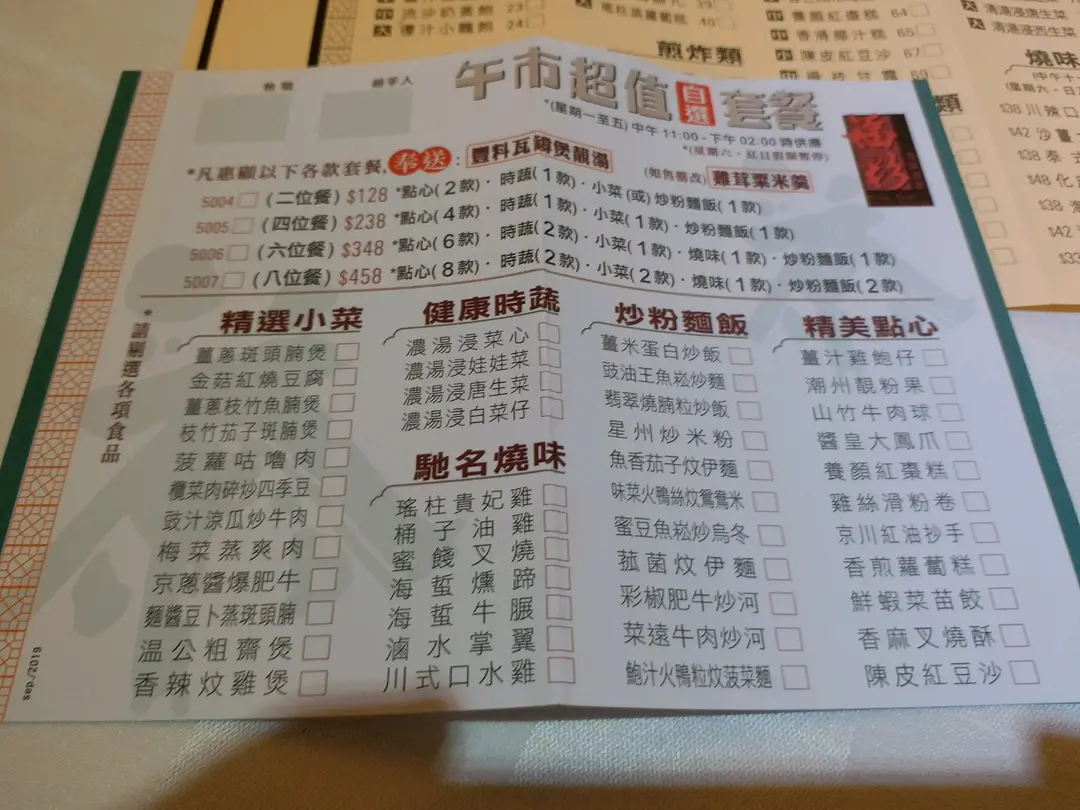 流沙奶黃飽 23
24
40
煎炸類
養顏紅棗糕 64
香滑椰汁糕 65
陳皮紅豆沙 67
楊枝甘露 60
清湯浸唐生菜
清湯浸西生菜
燒味
$38 川辣口
$42 沙薑
$48 化皮
枱號
經手人
午市超值自選套餐
*(星期一至五) 中午 11:00 - 下午 02:00 時供應
*(星期六．紅日假期暫停)
*凡惠顧以下各款套餐, 奉送 : 豐料瓦罉煲靚湯 (如售罄改) 雞茸粟米羹
5004 (二位餐) $128 *點心(2款)．時蔬(1款)．小菜(或)炒粉麵飯(1款)
5005 (四位餐) $238 *點心(4款)．時蔬(1款)．小菜(1款)．炒粉麵飯(1款)
5006 (六位餐) $348 *點心(6款)．時蔬(2款)．小菜(1款)．燒味(1款)．炒粉麵飯(1款)
5007 (八位餐) $458 *點心(8款)．時蔬(2款)．小菜(2款)．燒味(1款)．炒粉麵飯(2款)
*請剔選各項食品
精選小菜
薑蔥斑頭腩煲
金菇紅燒豆腐
薑蔥枝竹魚腩煲
枝竹茄子斑腩煲
菠蘿咕嚕肉
欖菜肉碎炒四季豆
豉汁涼瓜炒牛肉
梅菜蒸爽肉
京蔥醬爆肥牛
麵醬豆卜蒸斑頭腩
温公粗齋煲
香辣炆雞煲
健康時蔬
濃湯浸菜心
濃湯浸娃娃菜
濃湯浸唐生菜
濃湯浸白菜仔
馳名燒味
瑤柱貴妃雞
桶子油雞
蜜餞叉燒
海蜇燻蹄
海蜇牛𦟌
滷水掌翼
川式口水雞
炒粉麵飯
薑米蛋白炒飯
豉油王魚崧炒麵
翡翠燒腩粒炒飯
星州炒米粉
魚香茄子炆伊麵
味菜火鴨絲炆鴛鴦米
蜜豆魚崧炒烏冬
菰菌炆伊麵
彩椒肥牛炒河
菜遠牛肉炒河
鮑汁火鴨粒炆菠菜麵
精美點心
薑汁雞飽仔
潮州靚粉果
山竹牛肉球
醬皇大鳳爪
養顏紅棗糕
雞絲滑粉卷
京川紅油抄手
香煎蘿蔔糕
鮮蝦菜苗餃
香麻叉燒酥
陳皮紅豆沙
sep./2019